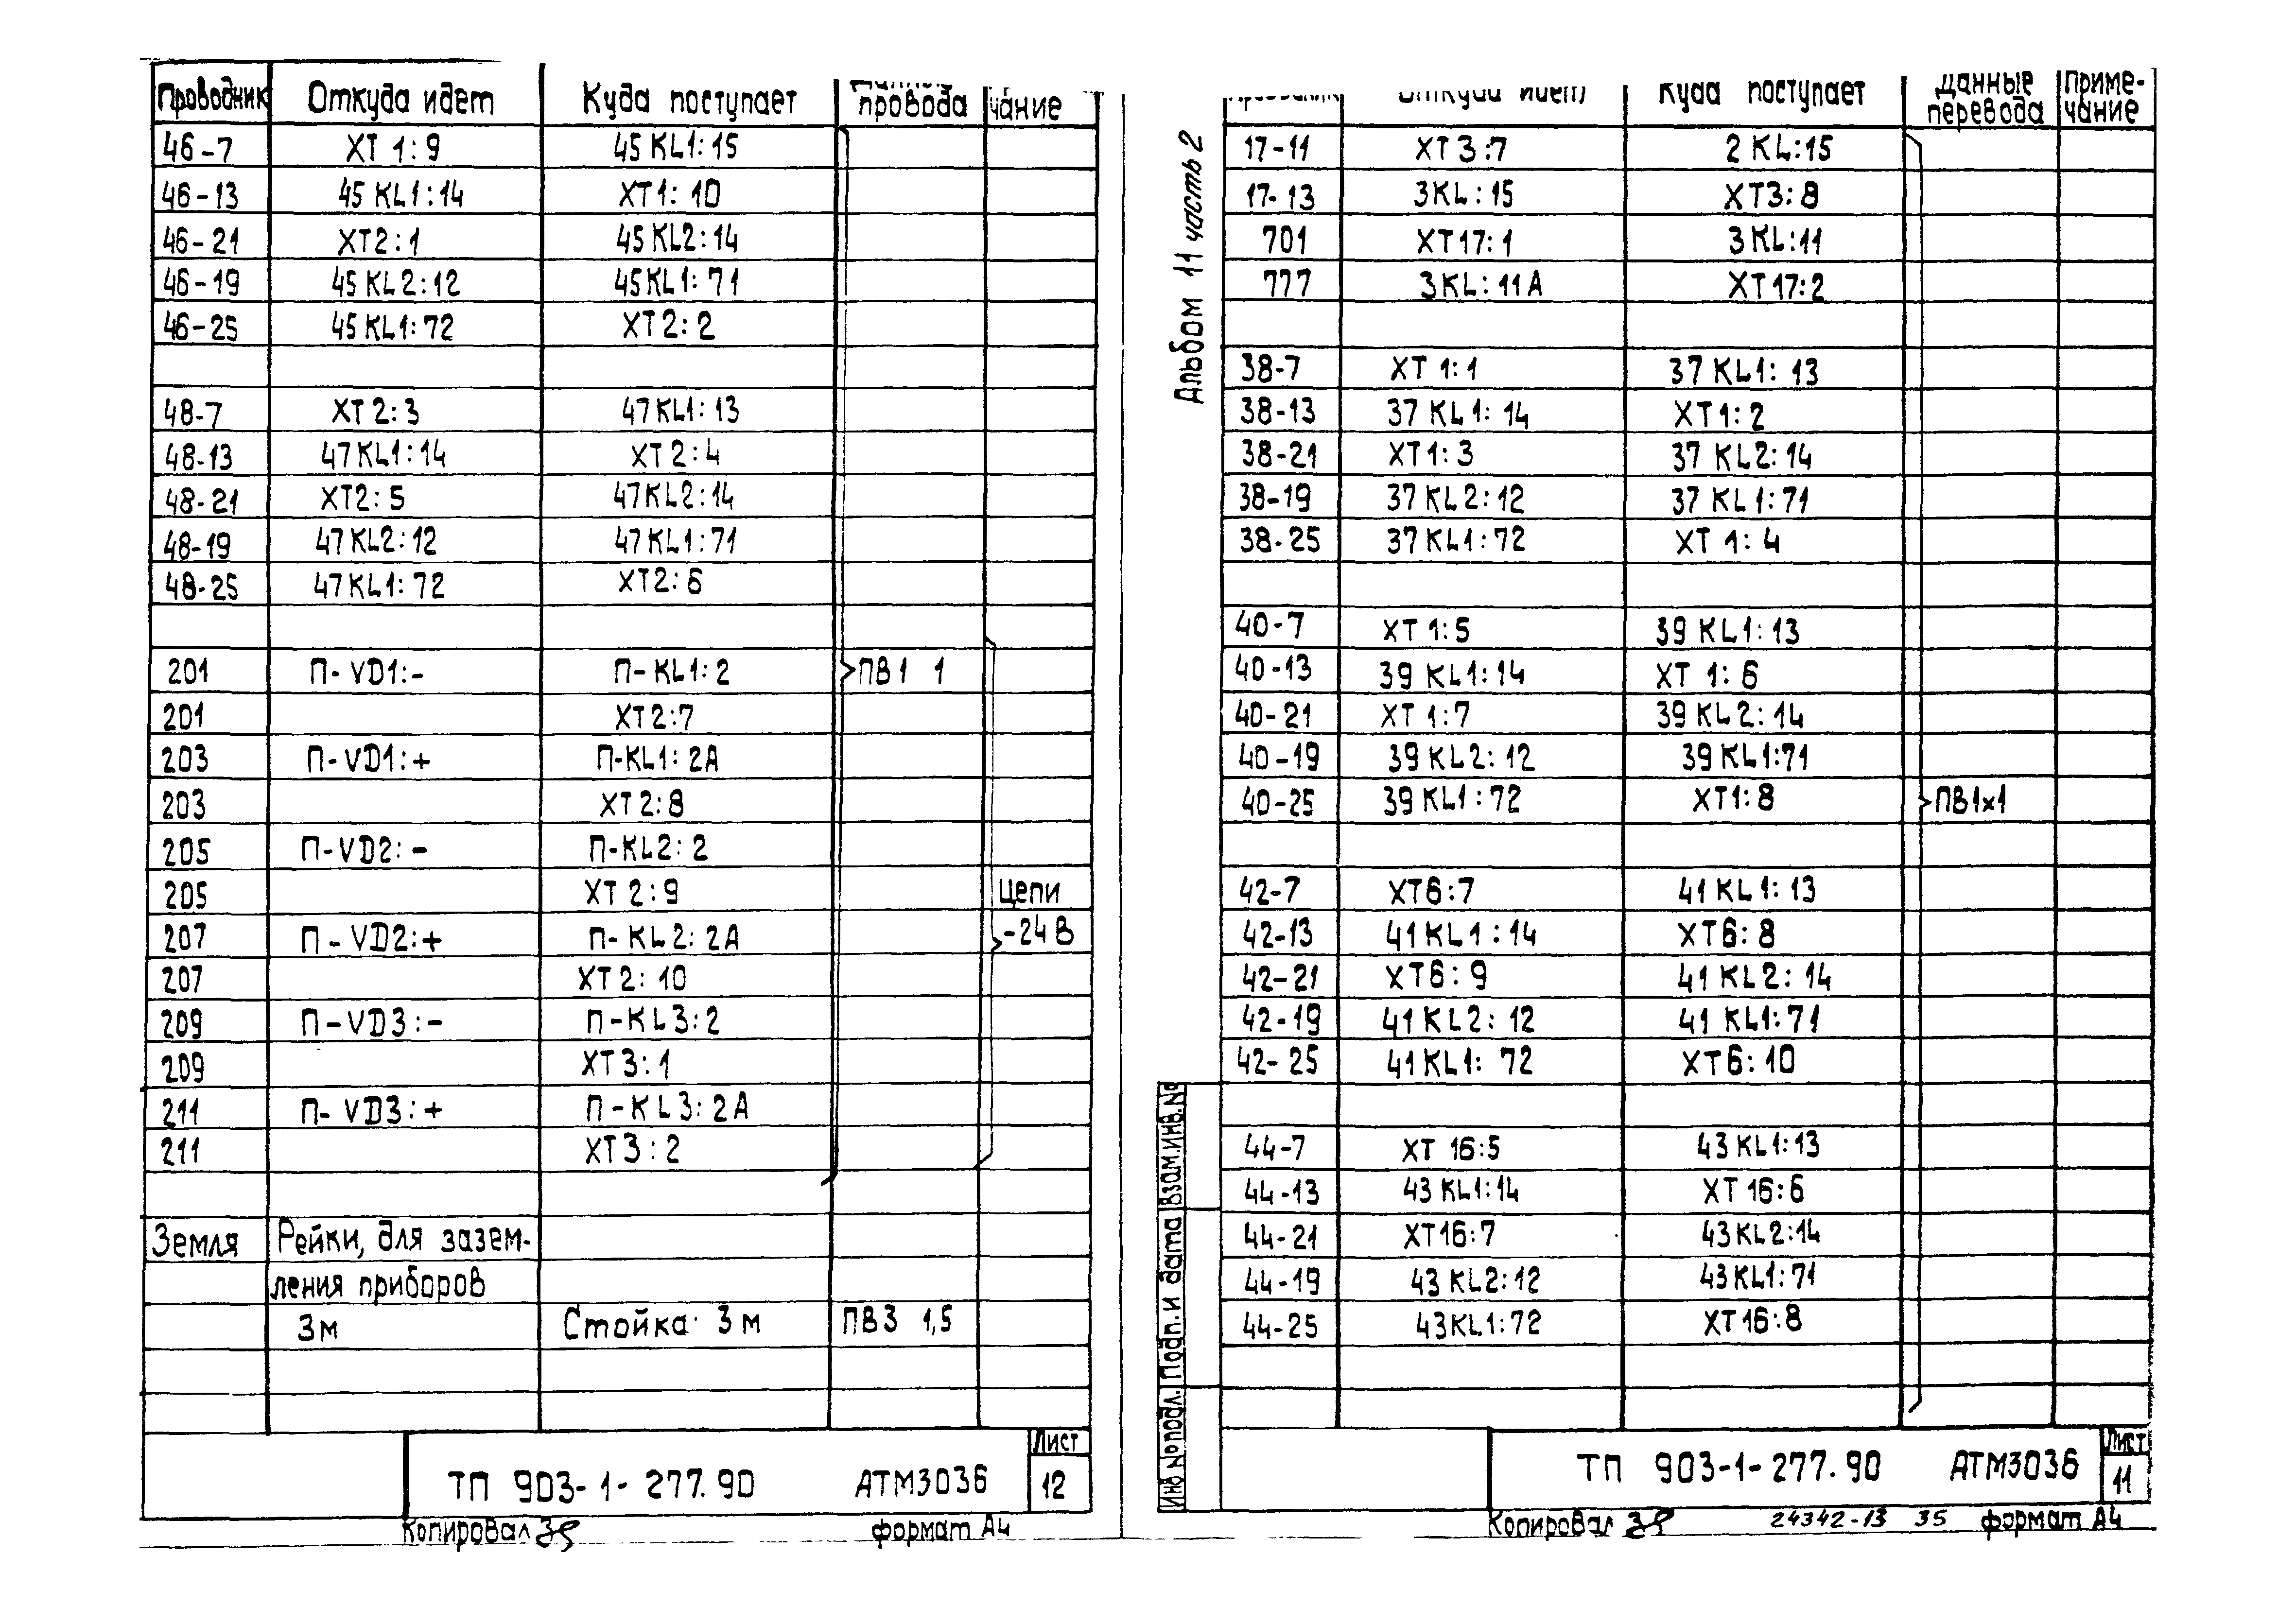 Проводник Откуда идет Куда поступает провода чание
46-7 XT 1:9 45 KL1:15
46-13 45 KL1:14 XT1:10
46-21 XT2:1 45 KL2:14
46-19 45 KL2:12 45KL1:71
46-25 45 KL1:72 XT2:2
48-7 XT2:3 47KL1:13
48-13 47KL1:14 XT2:4
48-21 XT2:5 47KL2:14
48-19 47KL2:12 47KL1:71
48-25 47KL1:72 XT2:6
201 П-VD1:- П-KL1:2 ПВ1 1
201 XT2:7
203 П-VD1:+ П-KL1:2А
203 XT2:8
205 П-VD2:- П-KL2:2
205 XT2:9 Цепи
207 П-VD2:+ П-KL2:2А -24В
207 XT2:10
209 П-VD3:- П-KL3:2
209 XT3:1
211 П-VD3:+ П-KL3:2А
211 XT3:2
Земля Рейки, для зазем-
ления приборов
3м Стойка 3м ПВ3 1,5
ТП 903-1-277.90 АТМ3036 Лист 12
Копировал формат А4
Альбом 11 часть 2
Откуда идет Куда поступает Данные перевода Приме-
чание
17-11 XT3:7 2KL:15
17-13 3KL:15 XT3:8
701 XT17:1 3KL:11
777 3KL:11А XT17:2
38-7 XT1:1 37 KL1:13
38-13 37 KL1:14 XT1:2
38-21 XT1:3 37 KL2:14
38-19 37 KL2:12 37 KL1:71
38-25 37 KL1:72 XT1:4
40-7 XT1:5 39 KL1:13
40-13 39 KL1:14 XT1:6
40-21 XT1:7 39 KL2:14
40-19 39 KL2:12 39 KL1:71
40-25 39 KL1:72 XT1:8 ПВ1х1
42-7 XT6:7 41 KL1:13
42-13 41KL1:14 XT6:8
42-21 XT6:9 41 KL2:14
42-19 41 KL2:12 41 KL1:71
42-25 41KL1:72 XT6:10
44-7 XT 16:5 43 KL1:13
44-13 43 KL1:14 XT 16:6
44-21 XT16:7 43KL2:14
44-19 43 KL2:12 43KL1:71
44-25 43KL1:72 XT16:8
Инв №подл. Подп. и дата Взам.инв.№
ТП 903-1-277.90 АТМ3036 Лист 11
Копировал 24342-13 35 формат А4